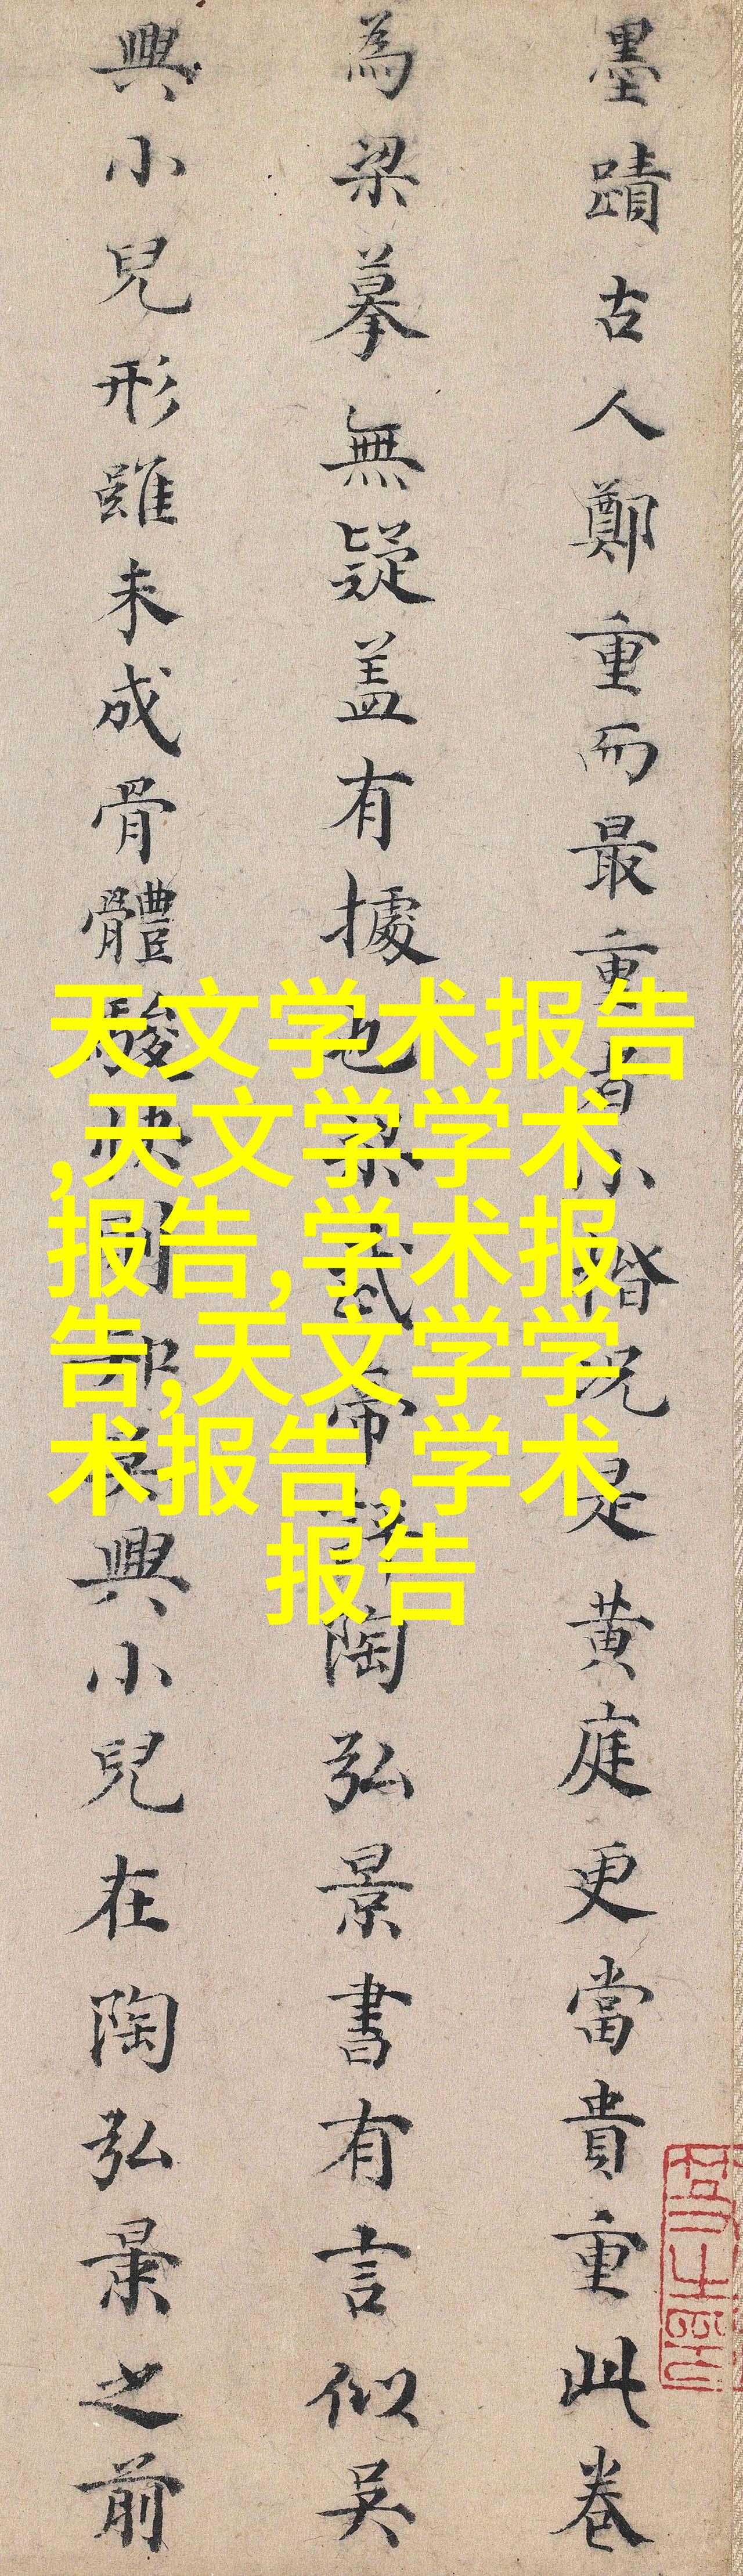 墨蹟古人鄭重而最重者小楷况是黄庭更當貴重此卷
為梁摹無疑盖有據也梁武帝評陶弘景書有言似吴
興小兒形雖未成骨體駿快則吴興小兒在陶弘景之前
天文学术报告
,天文学学术
报告,学术报
告,天文学学
术报告,学术
报告